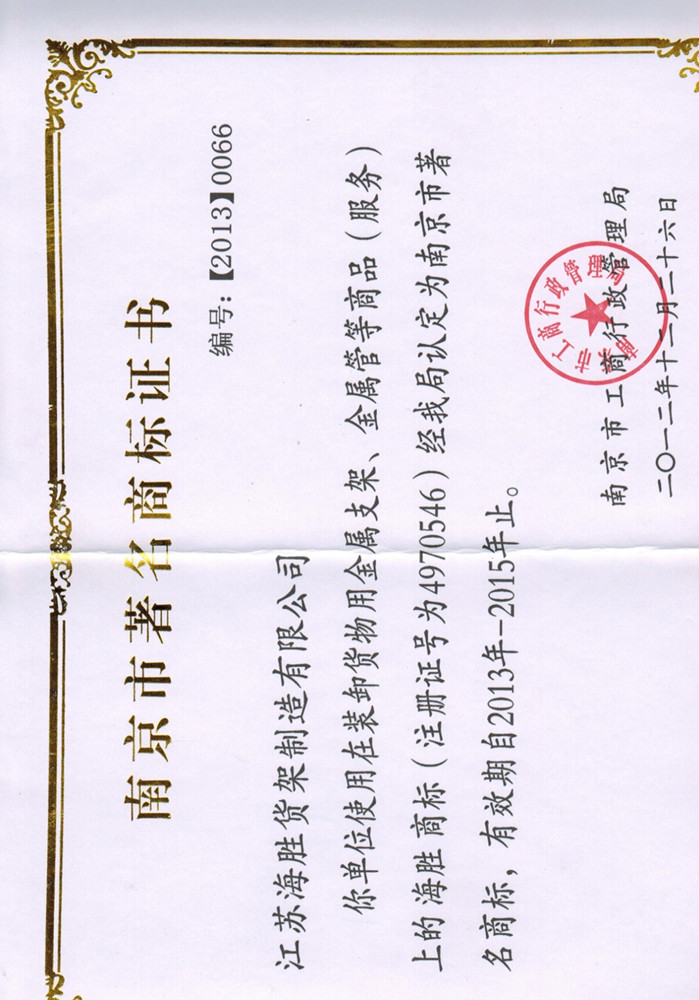 南京市著名商标证书
编号：【2013】0066
江苏海胜货架制造有限公司
你单位使用在装卸货物用金属支架、金属管等商品（服务）
上的 海胜 商标（ 注册证号为4970546）经我局认定为南京市著
名商标，有效期自2013年-2015年止。
南京市工商行政管理局
二〇一二年十二月二十六日